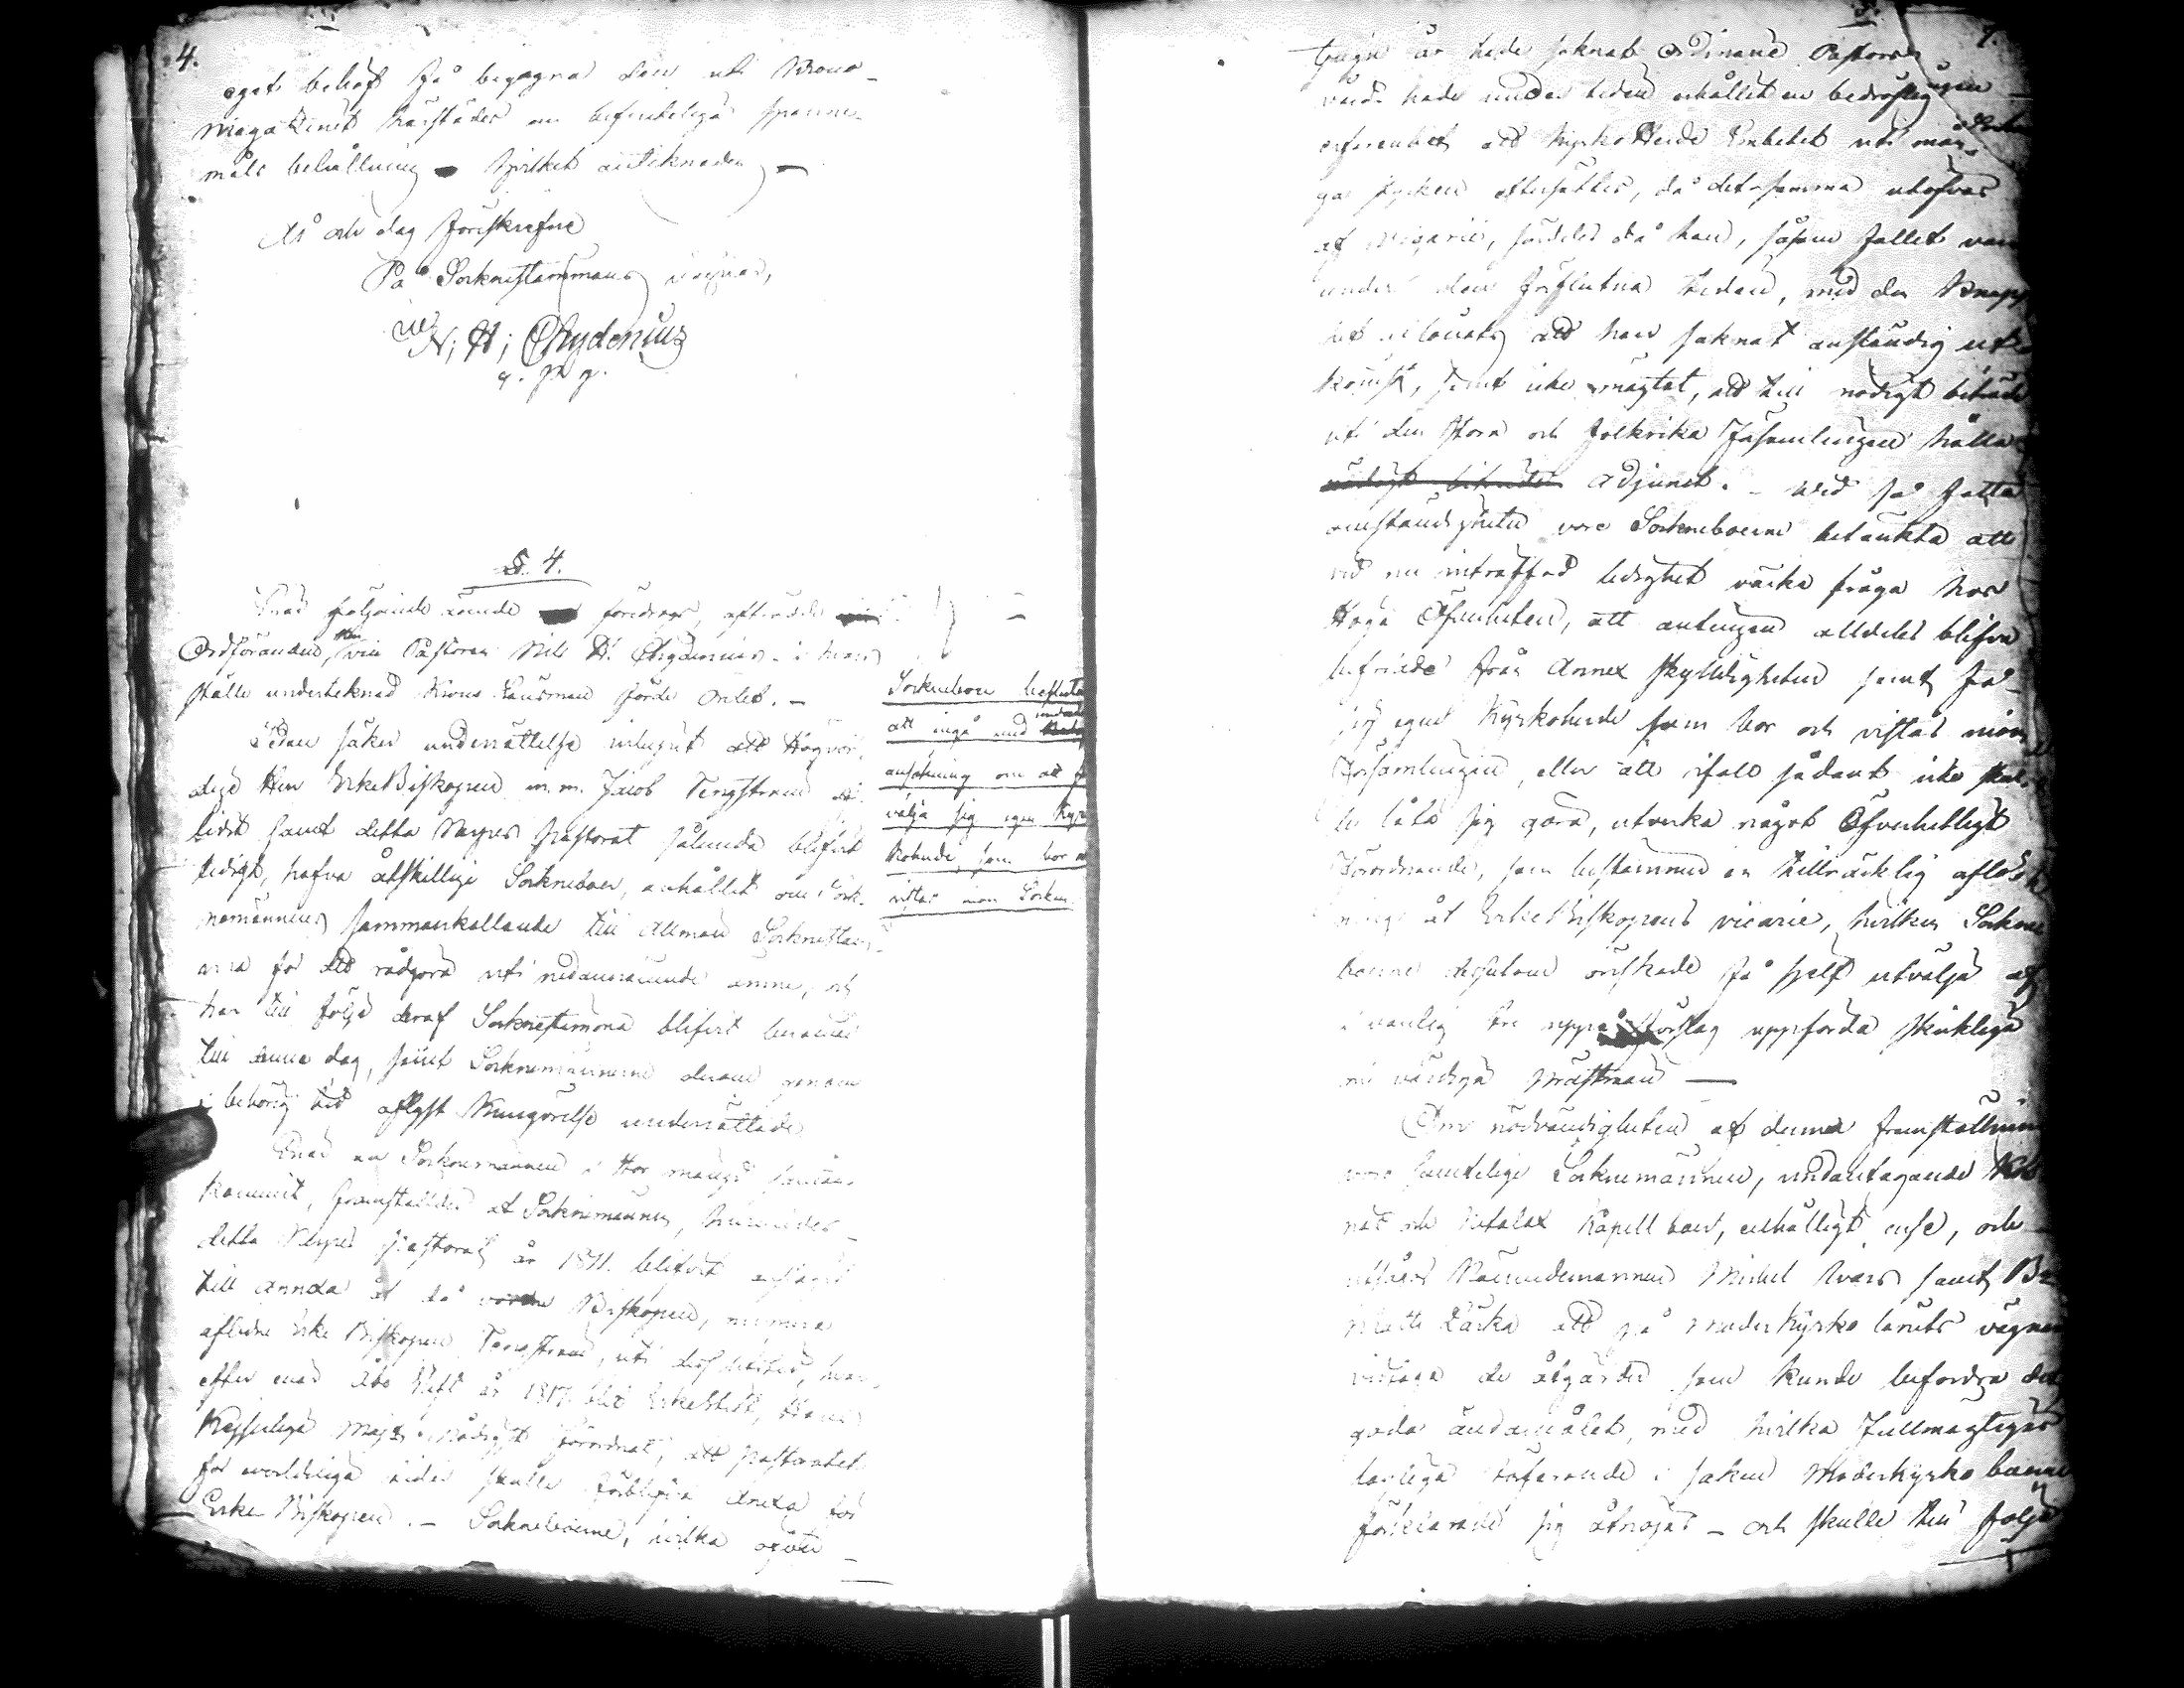 4.
eget behof få begagna den uti Krono-
Magazinet härstädes nu befinteliga spanne-
måls behållning – hvilket antecknades –
År och dag förskrefne
På Sockenstämmans vägnar,
N: H: Chydenius
§. 4.
Enär följande ämne föredrogs, afträdde
Ordföranden, Herr vice Pastoren Nils H. Chydenius i hvars
ställe undertecknad Krono Länsman förde Ordet. –
Sedan säker underrättelse inlupit att Högvör-
dige Herr ErkeBiskopen m.m. Jacob Tengström af-
lidit samt detta Nerpes pastorat sålunda blifvit
ledigt, hafva åtskillige Sockneboer, anhållit om Sock-
nemännens sammankallande till Allmän Socknestäm-
ma för att rådgöra uti nedannämnde ämne, och
har till följe deraf Socknestämma blifvit berammad
till denna dag, samt Socknemännerne derom genom
i behörig tid aflyst Kungörelse underrättade
Enär nu Socknemännen i stor mängd samman-
kommit, framställdes at Socknemännen, hurusom
detta Nerpes Pastorat år 1811. blifvit anslaget
till Annexa åt då varande Biskopen, numera
aflidne Erke Biskopen Tengström, uti dess lifstid, hvar-
efter enär Åbo Stift år 1817. blef ErkeStift, Hans
Kejserliga Majt i nåder förordnat, att pastoratet
för everldeliga tider skulle förblifva Annexa för
Erke Biskopen. – Sockneboerne, hvilka
Sockneboerne besluta
att ingå med underd.
ansökning om att få
välja sig egen Kyr-
koherde, som bor och
vistas inom Socken.
7.
tjugu år hade saknat Ordinarie Pastors
vård hade under tiden erhållit en bedröflig
erfarenhet att KyrkoHerde Embetet uti mån-
ga stycken eftersättes, då detsamma utöfvas
af Vicarie, särdeles då han, såsom fallet var
under den förflutna tiden, med den knapp-
het aflönats att han saknat anständig ut-
komst, samt icke mägtat, att till nödigt biträde
uti den stora och folkrika Församlingen hålla
nödigt biträde Adjunct. – Wid så fatta
omständigheter vore Sockneboerne betänkta att
vid nu inträffad ledighet väcka fråga hos
Höga Öfverheten, att antingen alldeles blifva
befriade från Annex skylldigheten samt få
sig egen Kyrkoherde som bor och vistas inom
Församlingen, eller att ifall sådant icke skul-
le låta sig göra, utverka något Öfverhetligt
Förordnande, som bestämmer en tillräcklig aflö-
ning åt ErkeBiskopens vicarie, hvilken Sockne-
boerne dessutom önskade få sjelf utvälja af
i vanlig tre uppå förslag uppförda skickliga
och värdiga Prestmän –
Om nödvändigheten af denna framställning
voro samtelige Socknemännen, undantagande
och Kapell boer, enhälligt ense, och
utsågs Nämndemannen Michel samt
Matts att på Moderkyrko länets vägnar
vidtaga de åtgärder som kunde befordra det
goda ändamålet, med hvilka Fullmägtigas
lagliga i saken Moderkyrko boerne
förklarade sig åtnöjas – och skulle till följe